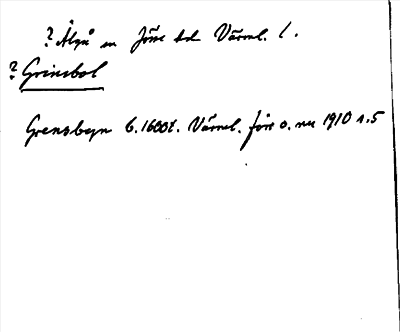 ? Älgå sn Jösse hd Värml. l.
? Grinsbol
Grensbyn b. 1600t. Värml. förr o. nu 1910 s. 5